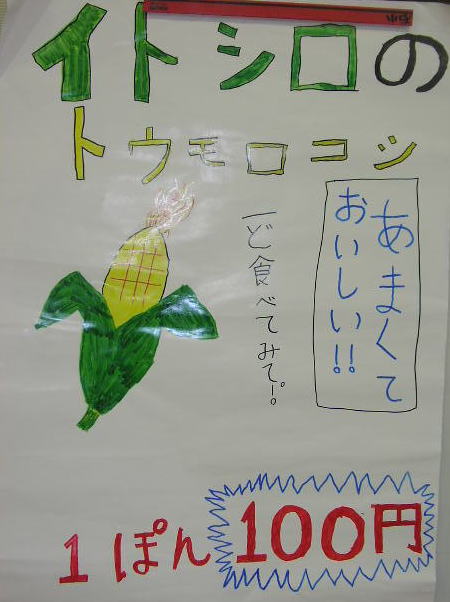 イトシロの
トウモロコシ
あまくて
おいしい!!
一ど食べてみて!。
1ぽん 100円